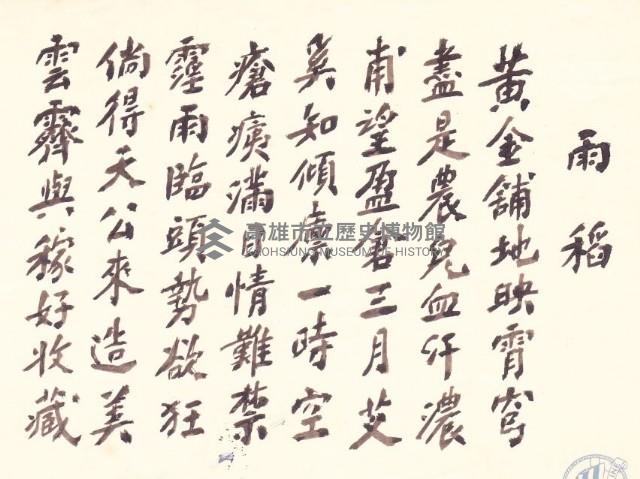 雨稻
黃金舖地映霄穹
盡是農兒血汗濃
甫望盈倉三月艾
奚知傾一時空
瘡痍滿目情難禁
霪雨臨頭勢欲狂
倘得天公來造美
雲霽與稼好收藏
高雄市立歷史博物館
KAOHSIUNG MUSEUM OF HISTORY